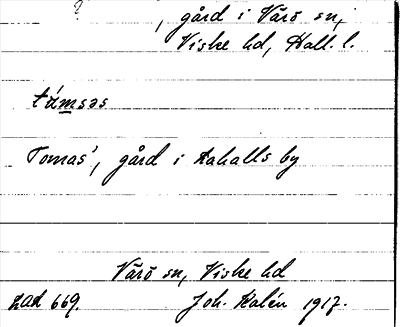 ?
, gård i Värö sn,
Viske hd, Hall. l.
támsəs
Tomas', gård i Aahalls by
Värö sn, Viske hd
Lad 669. Joh. Kalén 1917.